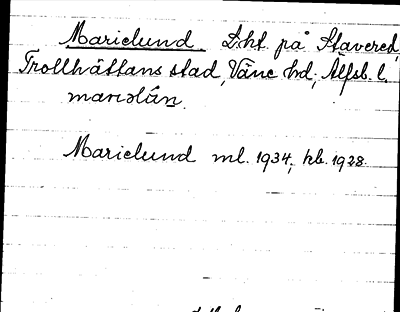 Marielund Lht. på Stavered,
Trollhättans stad, Väne hd; Älfsb. l.
Marielund ml. 1934; kb. 1928.